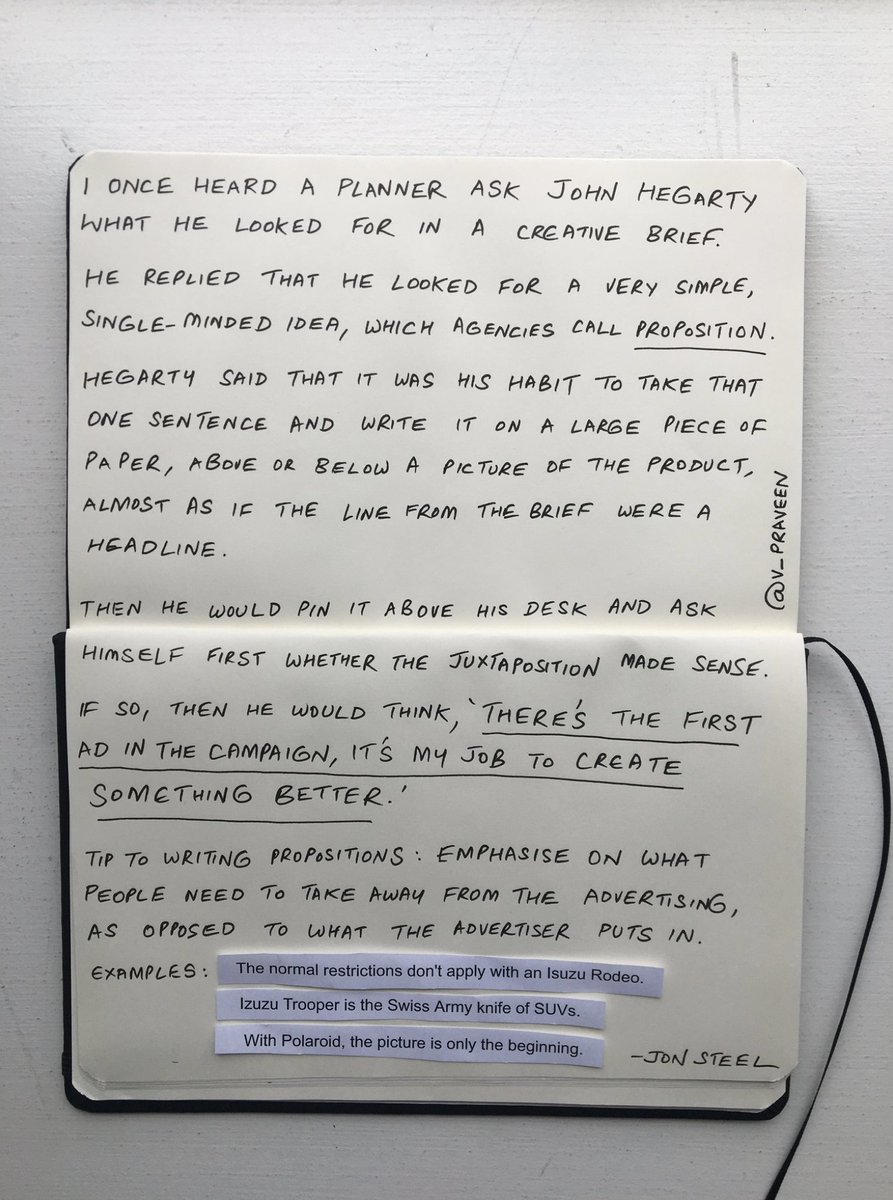 I ONCE HEARD A PLANNER ASK JOHN HEGARTY
WHAT HE LOOKED FOR IN A CREATIVE BRIEF.
HE REPLIED THAT HE LOOKED FOR A VERY SIMPLE,
SINGLE-MINDED IDEA, WHICH AGENCIES CALL PROPOSITION.
HEGARTY SAID THAT IT WAS HIS HABIT TO TAKE THAT
ONE SENTENCE AND WRITE IT ON A LARGE PIECE OF
PAPER, ABOVE OR BELOW A PICTURE OF THE PRODUCT,
ALMOST AS IF THE LINE FROM THE BRIEF WERE A
HEADLINE.
@V_PRAVEEN
THEN HE WOULD PIN IT ABOVE HIS DESK AND ASK
HIMSELF FIRST WHETHER THE JUXTAPOSITION MADE SENSE.
IF SO, THEN HE WOULD THINK, 'THERE'S THE FIRST
AD IN THE CAMPAIGN, IT'S MY JOB TO CREATE
SOMETHING BETTER.'
TIP TO WRITING PROPOSITIONS: EMPHASISE ON WHAT
PEOPLE NEED TO TAKE AWAY FROM THE ADVERTISING,
AS OPPOSED TO WHAT THE ADVERTISER PUTS IN.
EXAMPLES: The normal restrictions don't apply with an Isuzu Rodeo.
Izuzu Trooper is the Swiss Army knife of SUVs.
With Polaroid, the picture is only the beginning.
-JON STEEL